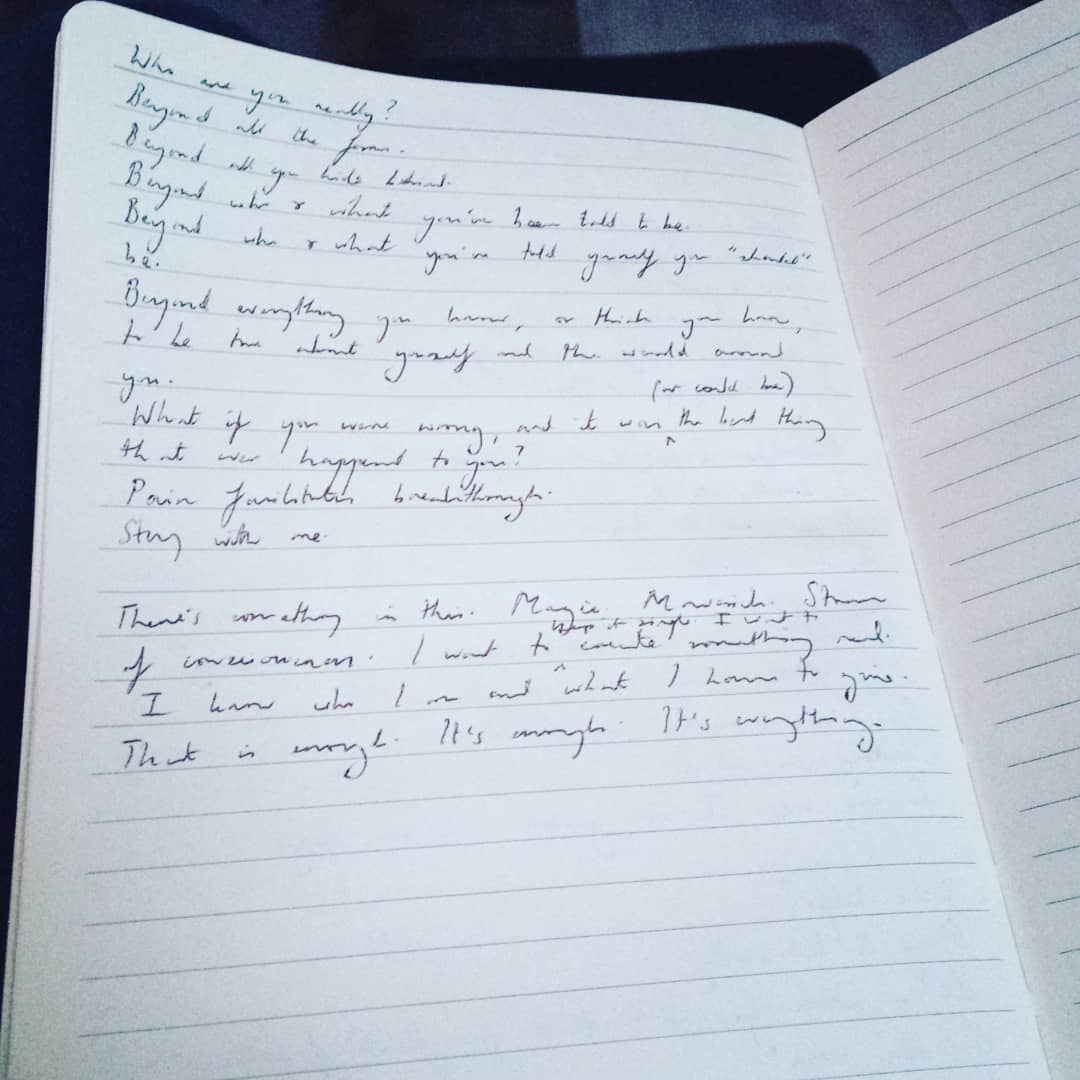 Who are you really?
Beyond all the forms.
Beyond all you hide behind.
Beyond who & what you've been told to be.
Beyond who & what you've told yourself you "should"
be.
Beyond everything you know, or think you know,
to be true about yourself and the world around
you.
(or could be)
What if you were wrong, and it was ^ the best thing
that ever happened to you?
Pain facilitates breakthrough.
Stay with me.
There's something in this. Magic. Stream
keep it simple. I want to
of consciousness. I want to ^ create something real.
I know who I am and what I have to give.
That is enough. It's enough. It's everything.